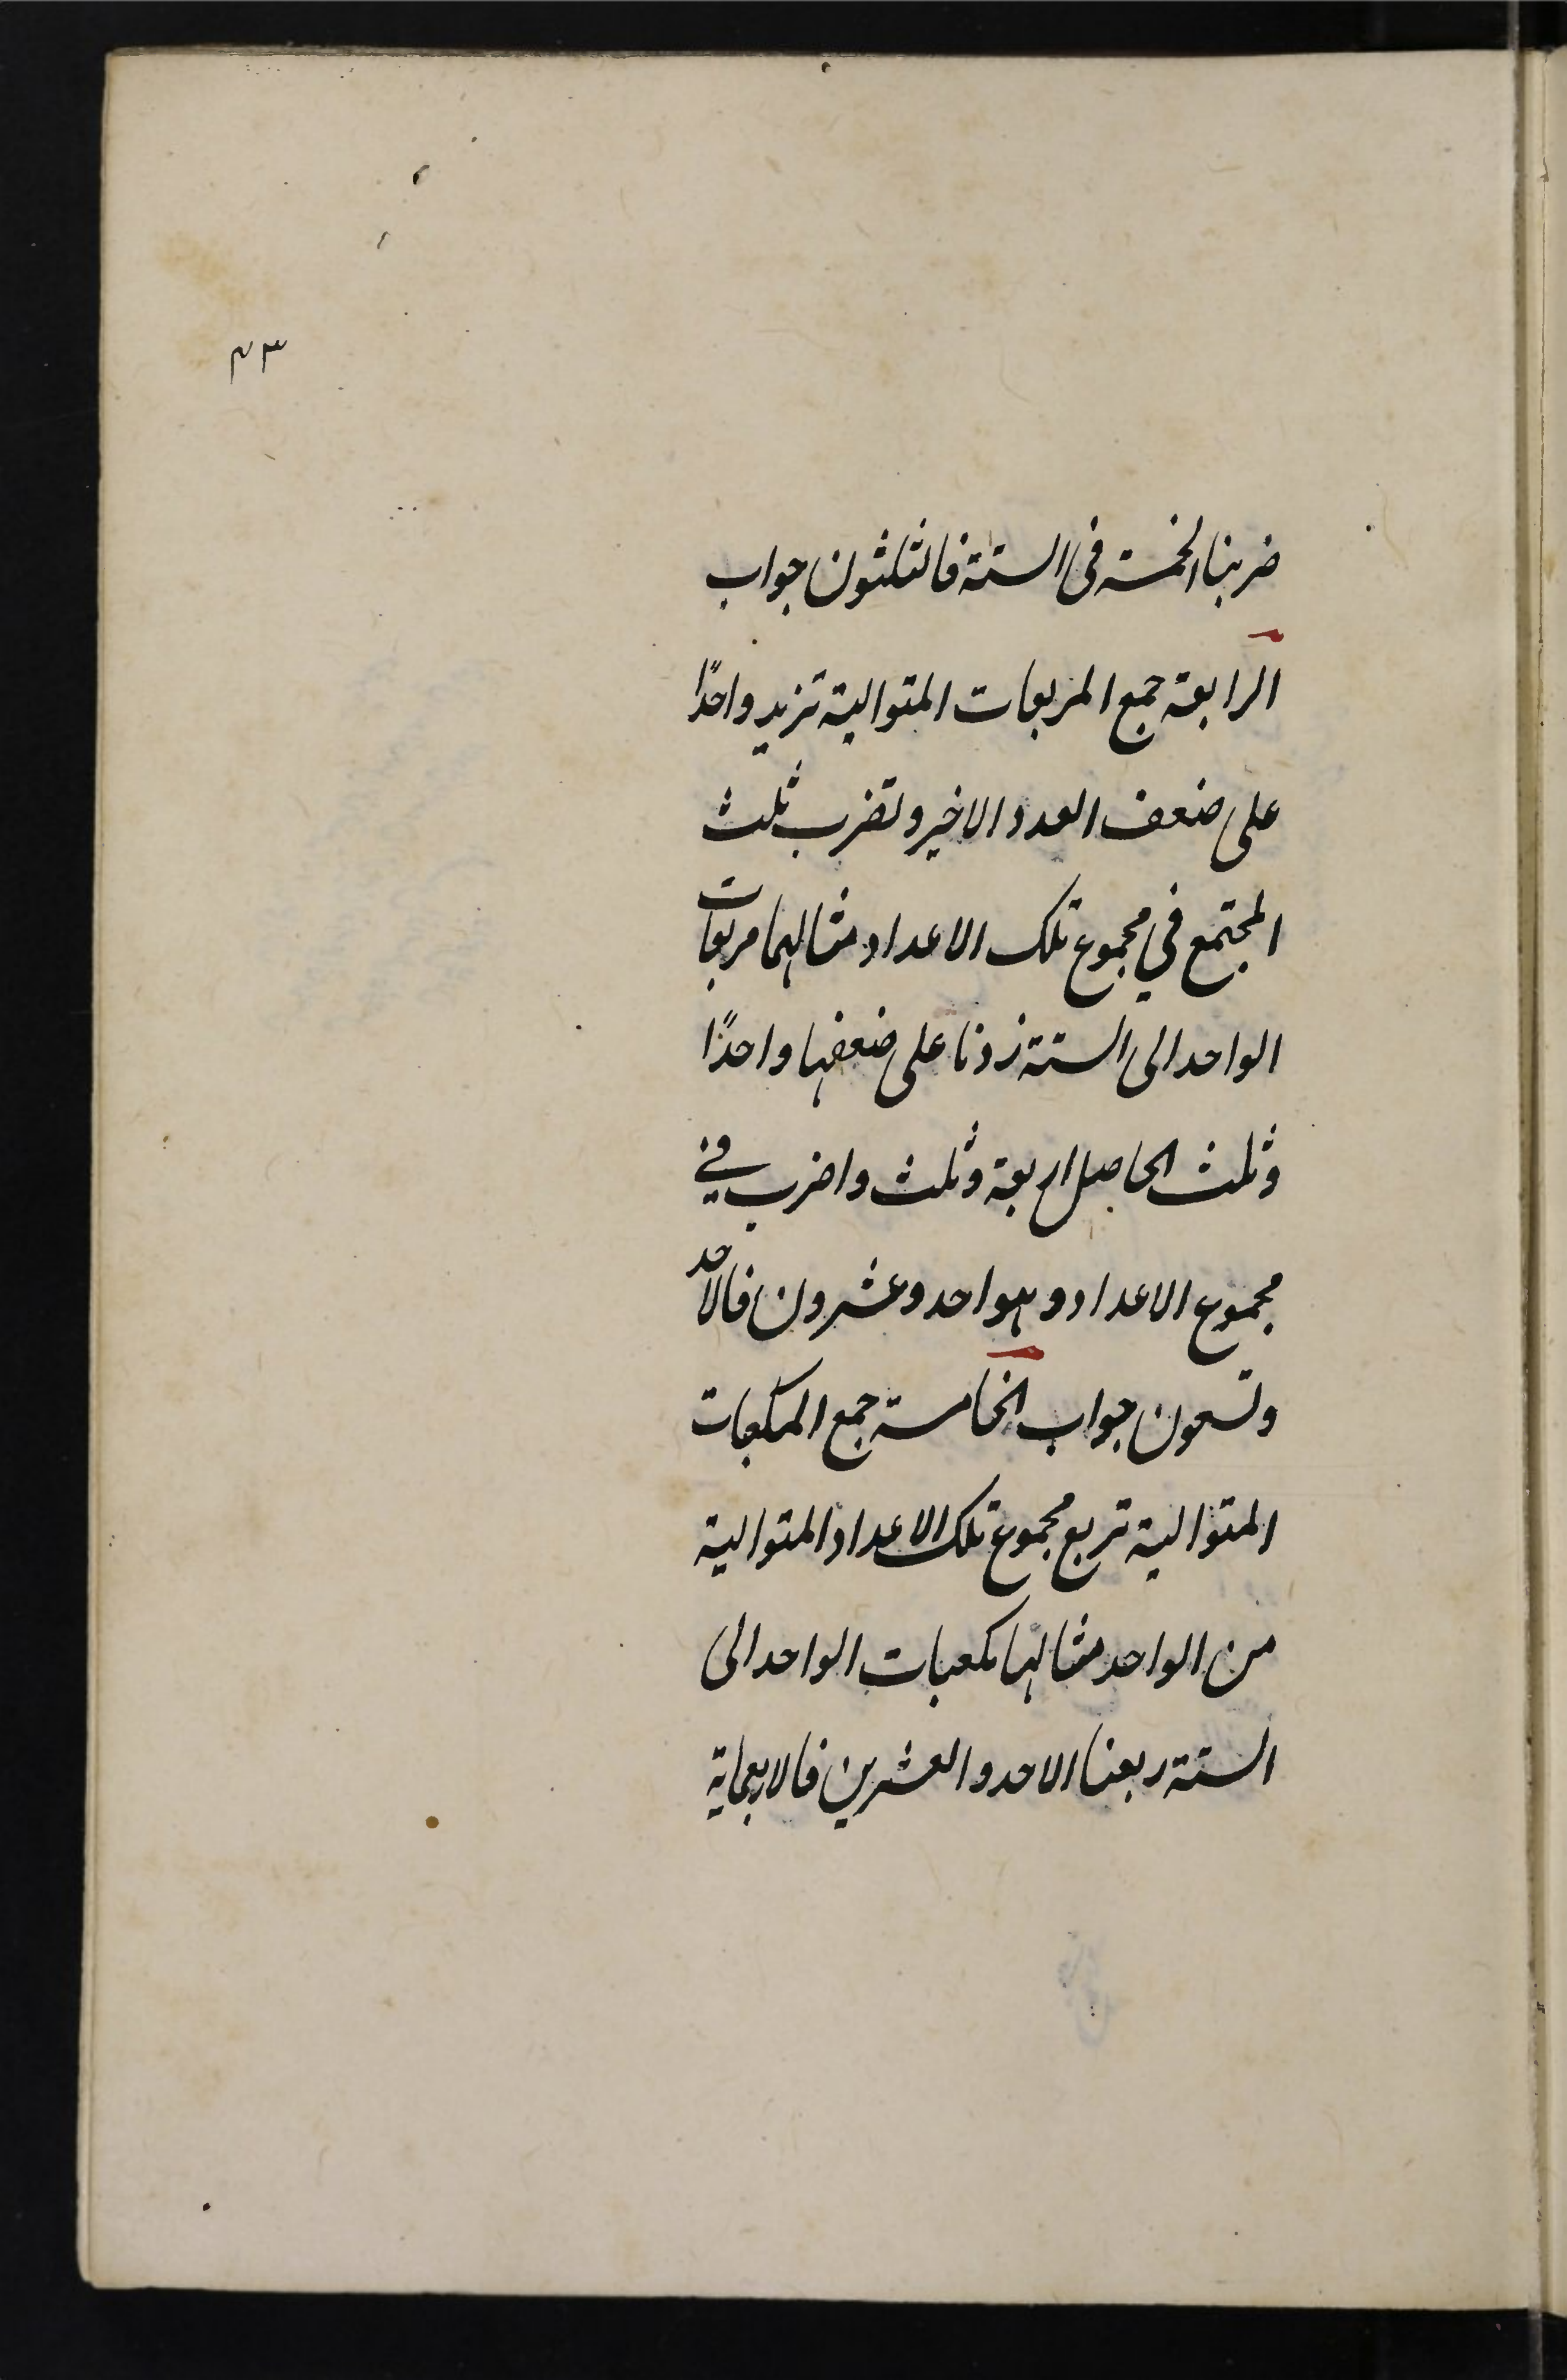 ٤٣
ضربنا الخمسة فى الستة فالثلثون جواب
الرابعة جمع المربعات المتوالية تزيد واحدًا
على ضعف العدد الاخير وتضرب ثلث
المجتمع في مجموع تلك الاعداد مثالها مربعات
الواحد الى الستة زدنا على ضعفها واحدًا
وثلث الحاصل اربعة وثلث واضرب في
مجموع الاعداد وهو احد وعشرون فالاحد
وتسعون جواب الخامسة جمع المكعبات
المتوالية تربع مجموع تلك الاعداد المتوالية
من الواحد مثالها مكعبات الواحد الى
الستة ربعنا الاحد والعشرين فالاربعماية